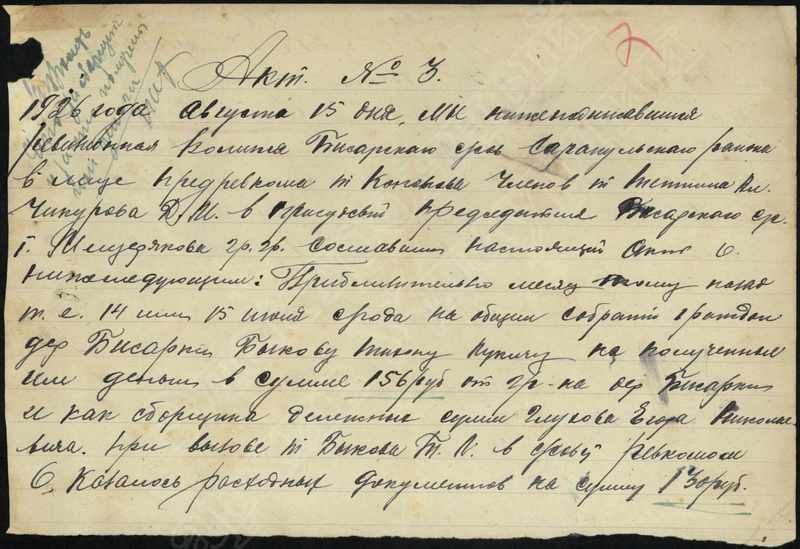 7
Акт. № 3.
1926 года августа 15 дня, мы нижеподписавшиеся
Ревизионная Комисия Бисарского с/об Сарапульского района
в лице предревкома т Коновова Членов т
Чикурова Д. И. в присутствии председателя Бисарского ср.
г. Мещерякова гр. гр. составили настоящий Акт о
нижеследующим: Приблизительно месяц тому назад
т. е. 14 или 15 июля с/года на общем собрании граждан
дер Бисарки Быкову Тихону Лукичу на полученные
им деньги в сумме 156 руб от гр-на дер Бисарки
и как сборщика денежных сумм Глухова Егора Николае-
вича. при вызове т Быкова Т. Л. в ревкомом
О. Казалось расходных документов на сумму 130 руб.